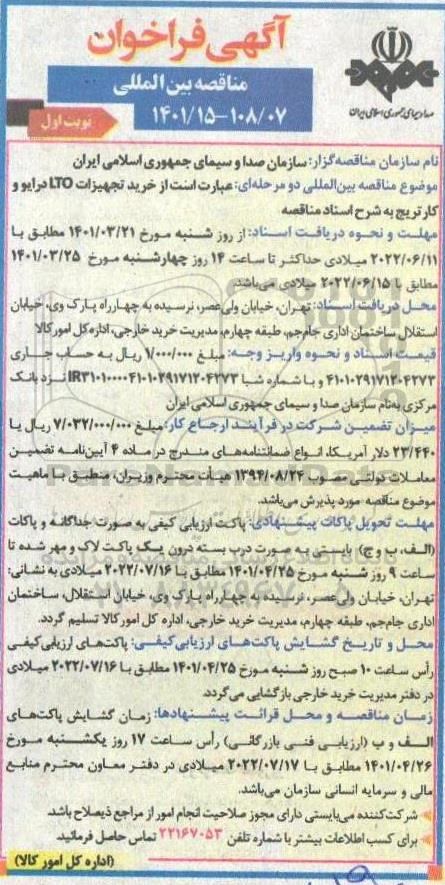 صدا و سیمای جمهوری اسلامی ایران
آگهی فراخوان
مناقصه بین المللی
۱۴۰۱/۱۵-۱۰۸/۰۷
نوبت اول
نام سازمان مناقصه‌گزار: سازمان صدا و سیمای جمهوری اسلامی ایران
موضوع مناقصه بین‌المللی دو مرحله‌ای: عبارت است از خرید تجهیزات LTO درایو و
کارتریج به شرح اسناد مناقصه
مهلت و نحوه دریافت اسناد: از روز شنبه مورخ ۱۴۰۱/۰۳/۲۱ مطابق با
۲۰۲۲/۰۶/۱۱ میلادی حداکثر تا ساعت ۱۴ روز چهارشنبه مورخ ۱۴۰۱/۰۳/۲۵
مطابق با ۲۰۲۲/۰۶/۱۵ میلادی می‌باشد.
محل دریافت اسناد: تهران، خیابان ولی‌عصر، نرسیده به چهارراه پارک وی، خیابان
استقلال ساختمان اداری جام‌جم، طبقه چهارم، مدیریت خرید خارجی، اداره کل امور کالا
قیمت اسناد و نحوه واریز وجه: مبلغ ۱/۰۰۰/۰۰۰ ریال به حساب جاری
۴۱۰۱۰۲۹۱۷۱۲۰۴۲۷۳ و با شماره شبا IR۳۱۰۱۰۰۰۰۴۱۰۱۰۲۹۱۷۱۲۰۴۲۷۳ نزد بانک
مرکزی به‌نام سازمان صدا و سیمای جمهوری اسلامی ایران
میزان تضمین شرکت در فرآیند ارجاع کار: مبلغ ۷/۰۳۲/۰۰۰/۰۰۰ ریال یا
۲۳/۴۴۰ دلار آمریکا، انواع ضمانتنامه‌های مندرج در ماده ۴ آیین‌نامه تضمین
معاملات دولتی مصوب ۱۳۹۴/۰۸/۲۴ هیات محترم وزیران، منطبق با ماهیت
موضوع مناقصه مورد پذیرش می‌باشد.
مهلت تحویل پاکات پیشنهادی: پاکت ارزیابی کیفی به صورت جداگانه و پاکات
(الف، ب و ج) بایستی به صورت درب بسته درون یک پاکت لاک و مهر شده تا
ساعت ۹ روز شنبه مورخ ۱۴۰۱/۰۴/۲۵ مطابق با ۲۰۲۲/۰۷/۱۶ میلادی به نشانی:
تهران، خیابان ولی‌عصر، نرسیده به چهارراه پارک وی، خیابان استقلال، ساختمان
اداری جام‌جم، طبقه چهارم، مدیریت خرید خارجی، اداره کل امور کالا تسلیم گردد.
محل و تاریخ گشایش پاکت‌های ارزیابی‌کیفی: پاکت‌های ارزیابی‌کیفی
رأس ساعت ۱۰ صبح روز شنبه مورخ ۱۴۰۱/۰۴/۲۵ مطابق با ۲۰۲۲/۰۷/۱۶ میلادی
در دفتر مدیریت خرید خارجی بازگشایی می‌گردد.
زمان مناقصه و محل قرائت پیشنهادها: زمان گشایش پاکت‌های
الف و ب (ارزیابی فنی بازرگانی) رأس ساعت ۱۷ روز یکشنبه مورخ
۱۴۰۱/۰۴/۲۶ مطابق با ۲۰۲۲/۰۷/۱۷ میلادی در دفتر معاون محترم منابع
مالی و سرمایه انسانی سازمان می‌باشد.
شرکت‌کننده می‌بایستی دارای مجوز صلاحیت انجام امور از مراجع ذیصلاح باشد.
برای کسب اطلاعات بیشتر با شماره تلفن ۲۲۱۶۷۰۵۳ تماس حاصل فرمائید.
(اداره کل امور کالا)